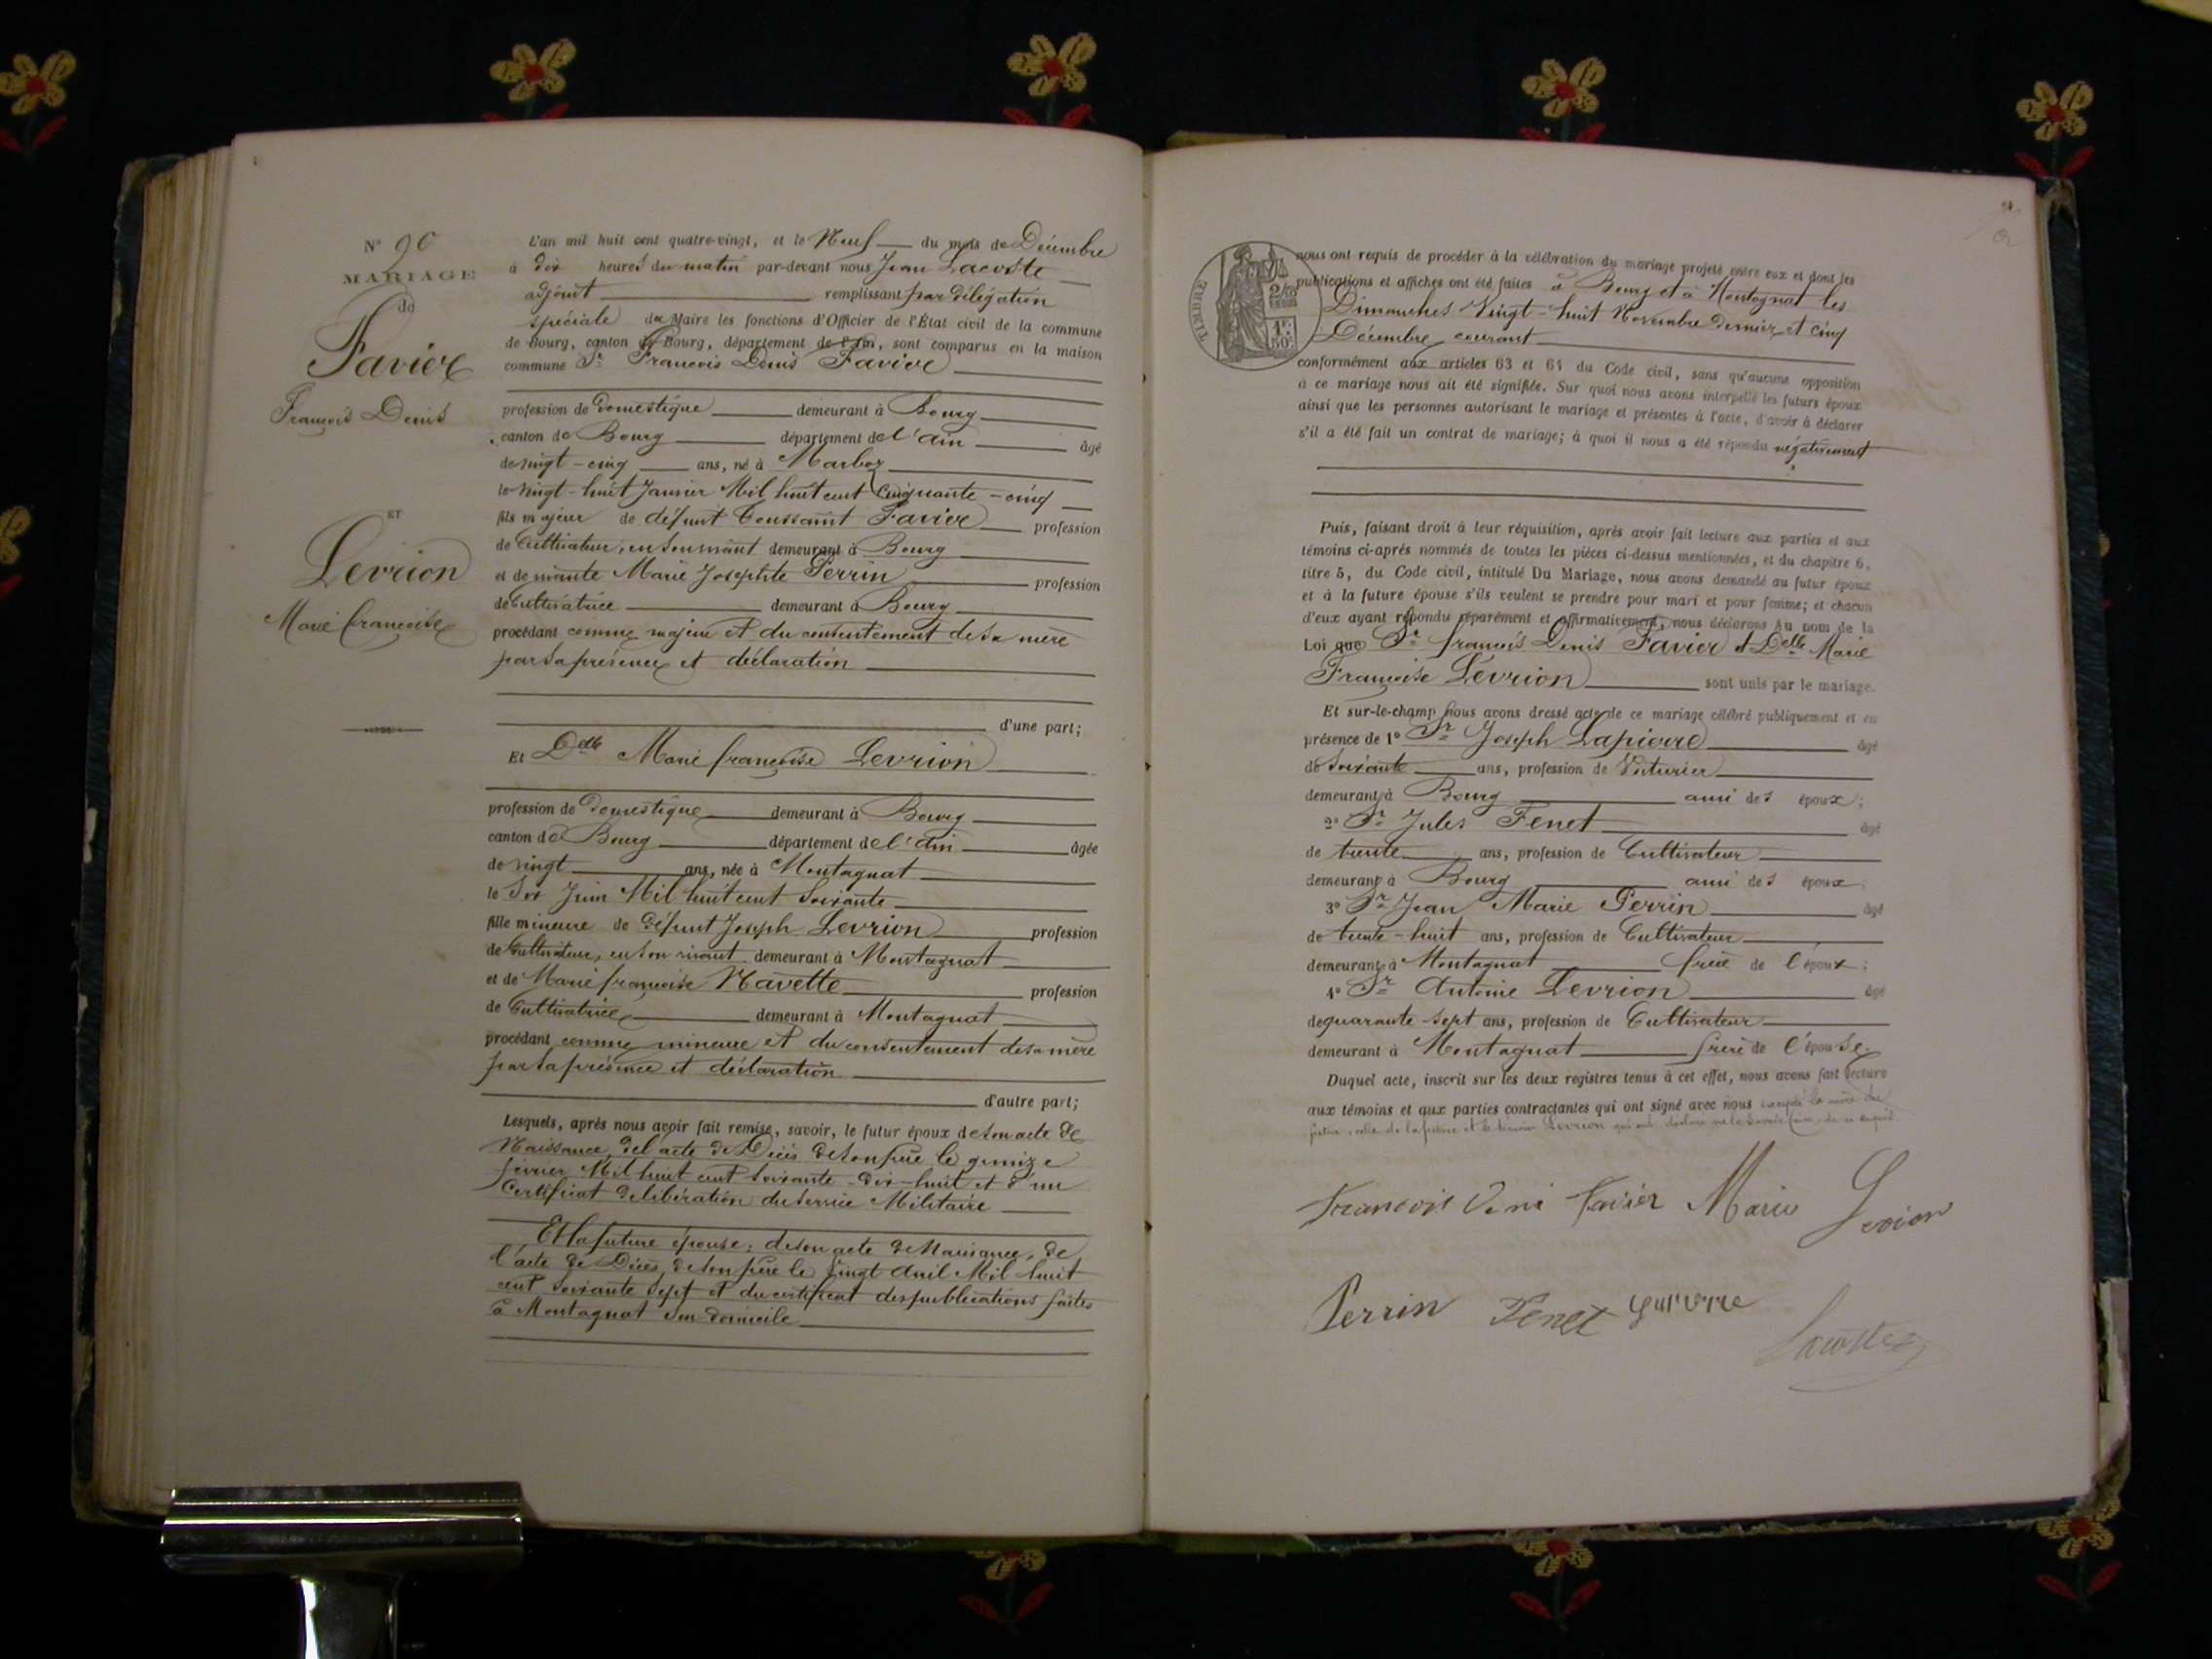 N° 90
MARIAGE
de
Favier
François Denis
ET
Levrion
Marie françoise
L'an mil huit cent quatre-vingt, et le Neuf du mois de Décembre
à dix heures du matin par-devant nous Jean Lacoste
adjoint remplissant par délégation
spéciale du Maire les fonctions d'Officier de l'État civil de la commune
de Bourg, canton de Bourg, département de l'Ain, sont comparus en la maison
commune Sr François Denis Favier
profession de Domestique demeurant à Bourg
canton de Bourg département de l'Ain âgé
de vingt-cinq ans, né à Marboz
le vingt-huit Janvier Mil huit cent Cinquante-cinq
fils majeur de défunt Toussaint Favier profession
de Cultivateur, en son vivant demeurant à Bourg
et de vivante Marie Josephte Perrin profession
de Cultivatrice demeurant à Bourg
procédant comme majeur et du consentement de sa mère
par sa présence et déclaration
d'une part;
Et Delle Marie françoise Levrion
profession de Domestique demeurant à Bourg
canton de Bourg département de l'Ain âgée
de vingt ans, née à Montagnat
le Six Juin Mil huit cent Soixante
fille mineure de Défunt Joseph Levrion profession
de Cultivateur, en son vivant demeurant à Montagnat
et de Marie françoise Navette profession
de Cultivatrice demeurant à Montagnat
procédant comme mineure et du consentement de sa mère
par sa présence et déclaration
d'autre part;
Lesquels, après nous avoir fait remise, savoir, le futur époux de son acte de
Naissance, del'acte de Décès de son père le quinze
février Mil huit cent soixante-dix-huit et d'un
Certificat de libération du service Militaire
Et la future épouse: de son acte de Naissance, de
l'acte de Décès de son père le vingt avril Mil huit
cent soixante sept et du certificat des publications faites
à Montagnat son domicile
TIMBRE
nous ont requis de procéder à la célébration du mariage projeté entre eux et dont les
publications et affiches ont été faites à Bourg et à Montagnat les
Dimanches Vingt-huit Novembre dernier et cinq
Décembre courant
conformément aux articles 63 et 64 du Code civil, sans qu'aucune opposition
à ce mariage nous ait été signifiée. Sur quoi nous avons interpellé les futurs époux
ainsi que les personnes autorisant le mariage et présentes à l'acte, d'avoir à déclarer
s'il a été fait un contrat de mariage; à quoi il nous a été répondu négativement
Puis, faisant droit à leur réquisition, après avoir fait lecture aux parties et aux
témoins ci-après nommés de toutes les pièces ci-dessus mentionnées, et du chapitre 6,
titre 5, du Code civil, intitulé Du Mariage, nous avons demandé au futur époux
et à la future épouse s'ils veulent se prendre pour mari et pour femme; et chacun
d'eux ayant répondu séparément et affirmativement, nous déclarons Au nom de la
Loi que Sr françois Denis Favier et Delle Marie
Françoise Levrion sont unis par le mariage.
Et sur-le-champ nous avons dressé acte de ce mariage célébré publiquement et en
présence de 1° Sr Joseph Lapierre âgé
de Soixante ans, profession de Voiturier
demeurant à Bourg ami des époux;
2° Sr Jules Fenet âgé
de trente ans, profession de Cultivateur
demeurant à Bourg ami des époux
3° Sr Jean Marie Perrin âgé
de trente-huit ans, profession de Cultivateur
demeurant à Montagnat frère de l'époux;
4° Sr Antoine Levrion âgé
de quarante-sept ans, profession de Cultivateur
demeurant à Montagnat frère de l'épouse.
Duquel acte, inscrit sur les deux registres tenus à cet effet, nous avons fait lecture
aux témoins et aux parties contractantes qui ont signé avec nous excepté la mère du
futur, celle de la future et le témoin Levrion qui ont déclaré ne le savoir faire, de ce enquis.
François Deni Favier Marie Levrion
Perrin Fenet
Lacoste